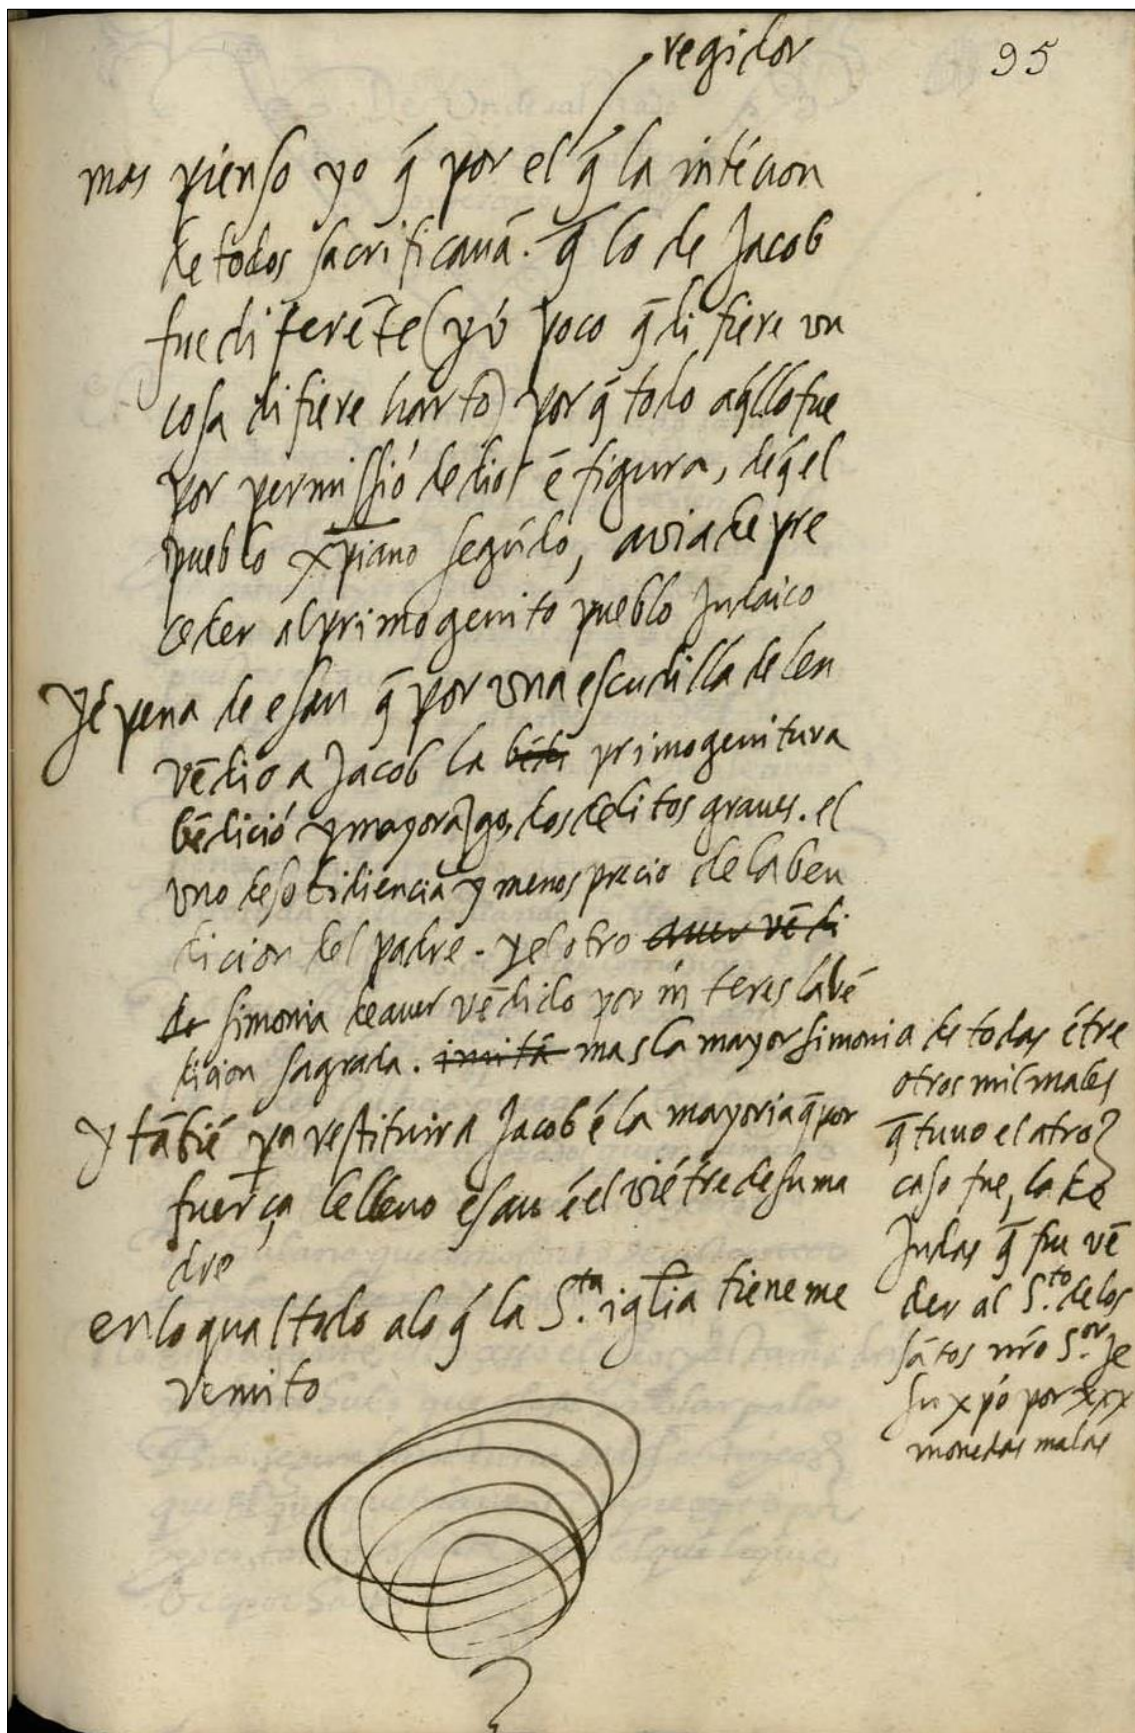 regidor
95
mas pienso yo q̃ por el q̃ la intẽcion
de todos sacrificauã. q̃ lo de Jacob
fue diferẽte (y õ poco q̃ difiere vn
cosa difiere harto) por q̃ todo aq̃llo fue
por permissiõ de dios ẽ figura, de q̃ el
pueblo xp̃iano segũdo, auia de pre
ceder al primogenito pueblo Judaico
y ẽ pena de esau q̃ por vna escudilla de len
vẽdio a Jacob la bẽdi primogenitura
bẽdiciõ y mayorazgo, dos delitos graues. el
vno desobidiencia y menos precio de la ben
dicion del padre. y el otro auer vẽdi
de simonia de auer vẽdido por interes la bẽ
dicion sagrada. imitã mas la mayor simonia de todas ẽtre
otros mil males
q̃ tuuo el atroz
caso fue, la de
Judas q̃ fue vẽ
der al S.to de los
sãtos nr̃o S.or Je
su xp̃o por xxx
monedas malas
y tãbiẽ pa restituir a Jacob ẽ la mayoria q̃ por
fuerça le lleuo esau ẽ el viẽtre de su ma
dre
en lo qual todo a lo q̃ la S.ta iglia tiene me
remito